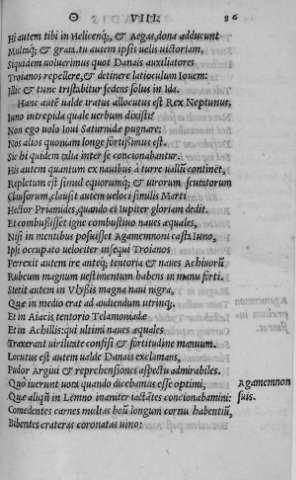 Θ VIII. 86
Hi autem tibi in Helicenq;, & Aegas, dona adducunt
Multaq; & grata. tu autem ipsis uelis uictoriam,
Siquidem uoluerimus quot Danais auxiliatores
Troianos repellere, & detinere latioculum Iouem:
Illic & tunc tristabitur sedens solus in Ida.
Hanc autē ualde tratus allocutus est Rex Neptunus,
Iuno intrepida quale uerbum dixisti?
Non ego uolo Ioui Saturnidæ pugnare;
Nos altos quoniam longe fortissimus est.
Sic hi quidem talia inter se concionabantur.
Hi autem quantum ex nauibus à turre uallū continet,
Repletum est simul equorumq; & uirorum scutatorum
Clausorum, clausit autem ueloci similis Marti
Hector Priamides, quando ei Iupiter gloriam dedit.
Et combussisset igne combustiuo naues æquales,
Nisi in mentibus posuisset Agamemnoni casta Iuno,
Ipsi occupato uelociter insequi Troianos
Perrexit autem ire anteq; tentoria & naues Achiuorū
Rubeum magnum uestimentum habens in manu forti.
Stetit autem in Vlyssis magna naui nigra,
Quæ in medio erat ad audiendum utrinq;.
Et in Aiacis tentorio Telamoniadæ
Et in Achillis: qui ultimi naues æquales
Traxerant uiriluxte confisi & fortitudine manuum.
Locutus est autem ualde Danais exclamans,
Pudor Argiui & reprehensiones aspectu admirabiles.
Quò iuerunt uota quando dicebamus esse optimi,
Agamemnon
Quæ aliqñ in Lemno inaniter iactātes concionabamini:
suis.
Comedentes carnes multas boū longum cornu habentiū,
Bibentes crateras coronatas uino: